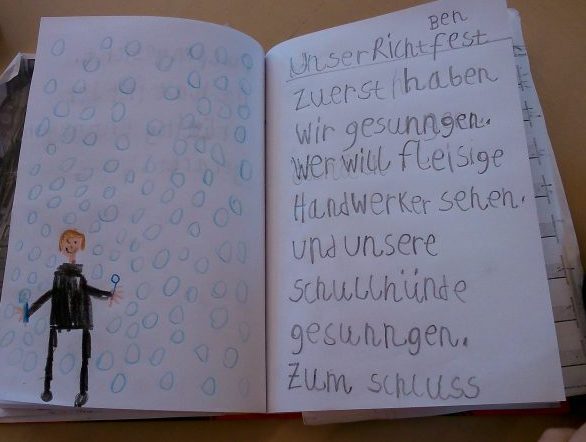 Ben
Unser Richtfest
zuerst haben
wir gesunngen.
wer will fleisige
Handwerker sehen.
und unsere
schullhünde
gesunngen.
Zum schluss